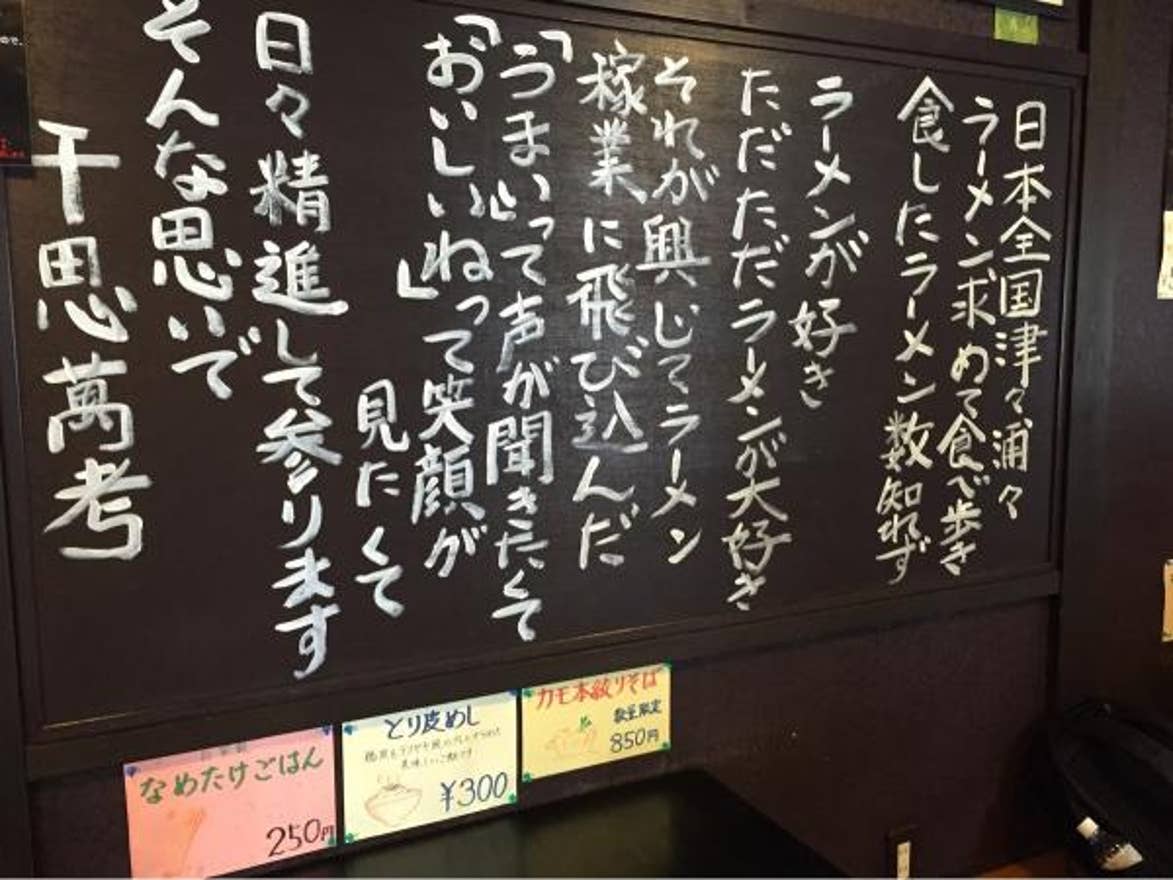 日本全国津々浦々
ラーメン求めて食べ歩き
食したラーメン数知れず
ラーメンが好き
ただただラーメンが大好き
それが興じてラーメン
稼業に飛び込んだ
「うまい」って声が聞きたくて
「おいしいね」って笑顔が
見たくて
日々精進して参ります
そんな思いで
千思萬考
なめたけごはん
250円
とり皮めし
美味しいご飯です
¥300
カモ本絞りそば
数量限定
850円